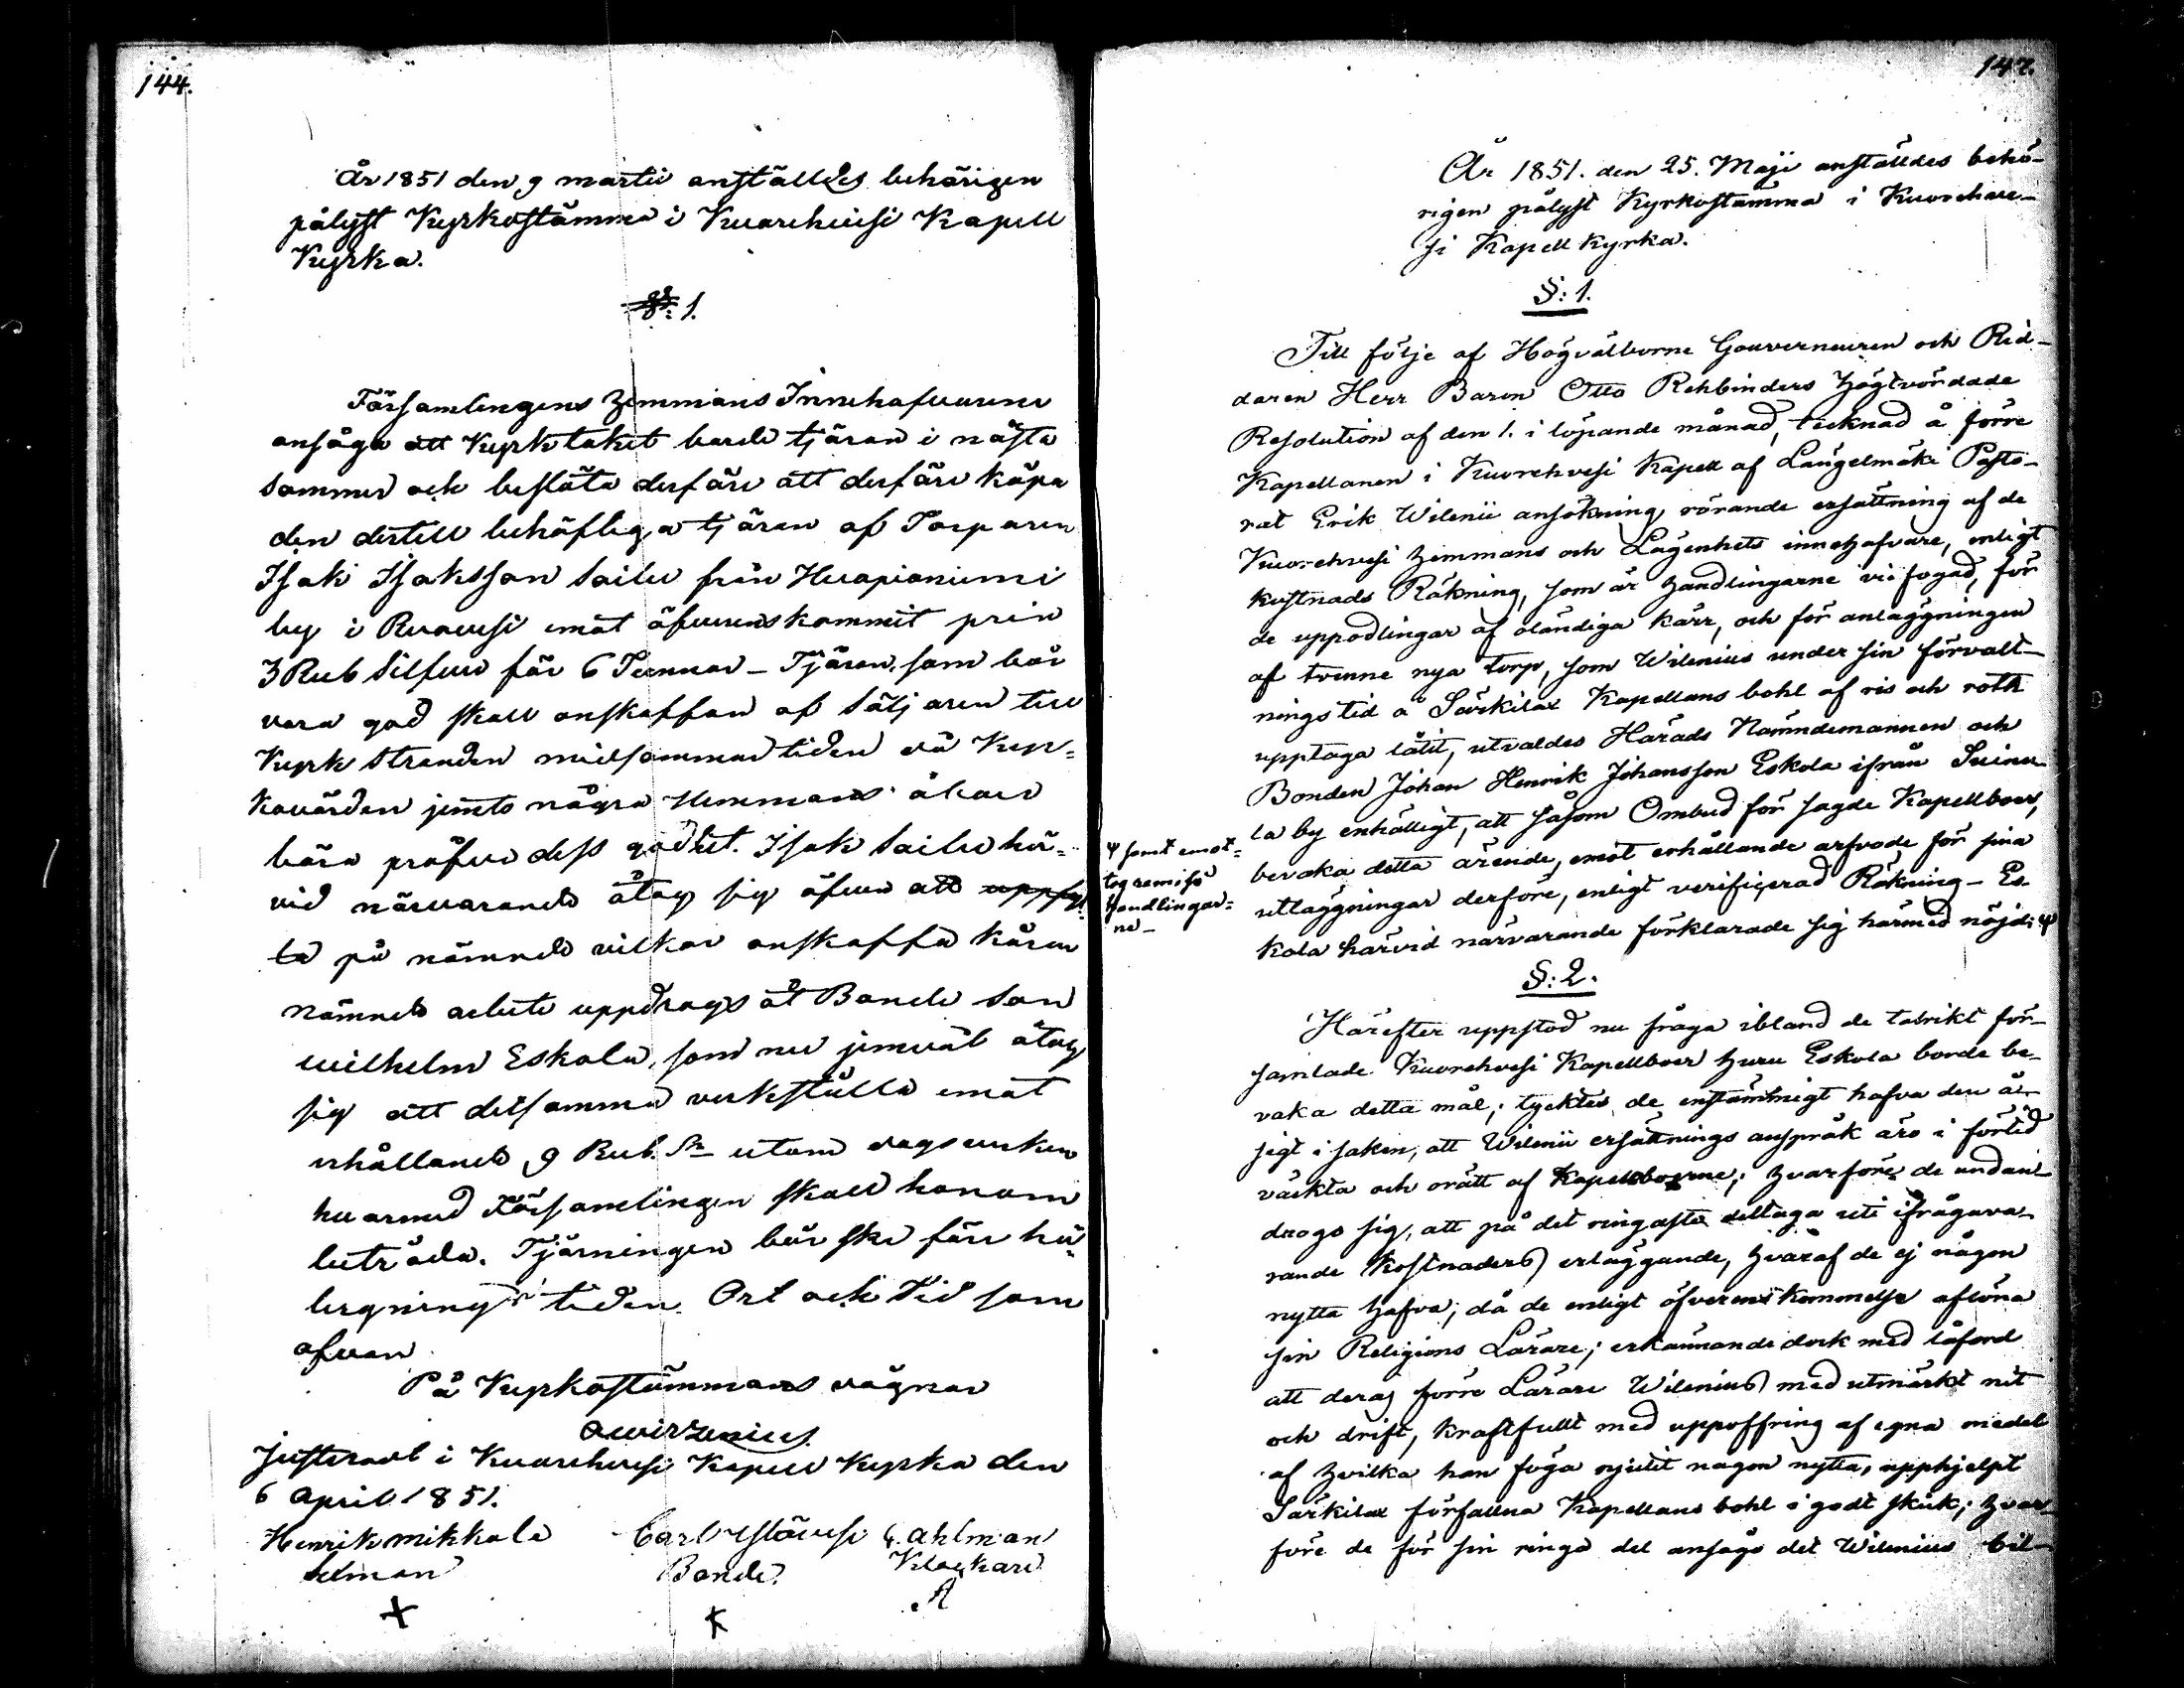 144.
År 1851 den 9 martii anställdes behörigen
pålyst Kyrkostämma i Kuorehvesi Kapell
Kyrka.
§: 1.
Församlingens Hemmans Innehafvarene
ansåga att Kyrktaket borde tjäras i nästa
sommar och beslöto derföre att derföre köpa
den dertill behöfliga tjäran af Torparen
Isak Isaksson Sailu från Huopioniemi
by i Ruovesi emot öfverenskommit pris
3 Rub Silfver för 6 Tunnor – Tjäran, som bör
vara god skall anskaffas af Säljaren till
Kyrk stranden midsommar tiden då Kyr=
kovärden jemte några Hemmans åboer
böra pröfva dess godhet. Isak Sailu här=
vid närvarande åtog sig äfven att uppfyl
la på nämnde vilkor anskaffa tjäran
Nämnde arbete uppdrogs åt Bonde Son
Wilhelm Eskola, som nu jemväl åtog
sig att detsamma verkställa emot
erhållande 9 Rub. Sr utom dagsverken
hvarmed Församlingen skall honom
biträda. Tjärningen bör ske före hö=
bergnings tiden. Ort och tid som
ofvan
På Kyrkostämmans vägnar
A Wirzenius.
Justeradt i Kuorehvesi Kapell Kyrka den
6 April 1851.
Henrik Mikkola Carl Ylöuesi G. Ahlman
Bonde. Klockare
147.
År 1851. den 25. Maji anställdes behö-
rigen pålyst Kyrkostämma i Kuorehve-
si Kapell Kyrka.
§: 1.
Till följe af Högvälborne Gouverneuren och Rid-
daren Herr Baron Otto Rehbinders Högtvördade
Resolution af den 1. i löpande månad, tecknad å förre
Kapellanen i Kuorehvesi Kapell af Längelmäki Pasto-
rat Erik Wilenii ansökning rörande ersättning af de
Kuorehvesi Hemmans och Lägenhets innehafvare, enligt
kostnads Räkning, som är Handlingarne vidfogad, för
de uppodlingar af oländiga kärr, och för anläggningen
af tvenne nya torp, som Wilenius under sin förvalt-
nings tid å Särkilax Kapellans bohl af ris och roth
upptaga låtit, utvaldes Härads Nämndemannen och
Bonden Johan Henrik Johansson Eskola ifrån Suinu-
la by enhälligt, att såsom Ombud för sagde Kapellboer,
bevaka detta ärende, emot erhållande arfvode för sina
utläggningar derföre, enligt verifiçerad Räkning – Es-
kola härvid närvarande förklarade sig härmed nöjd; ψ
ψ samt emot=
tog remiss
Handlingar=
ne –
§: 2.
Härefter uppstod nu fråga ibland de talrikt för-
samlade Kuorehvesi Kapellboer huru Eskola borde be-
vaka detta mål; tycktes de enstämmigt hafva den å-
sigt i saken, att Wilenii ersättnings anspråk äro i förtid
väckta och orätt af Kapellboerne; Hvarföre de undan-
drogo sig, att på det ringaste deltaga uti ifrågava-
rande Kostnaders erläggande, hvaraf de ej någon
nytta hafva; då de enligt öfverenskommelse aflöna
sin Religions Lärare; erkännande dock med låford
att deras förre Lärare Wilenius med utmärkt nit
och drift, kraftfullt med uppoffring af egna medel
af Hvilka han föga njutit någon nytta, upphjelpt
Särkilax förfallna Kapellans bohl i godt skick; Hvar-
före de för sin ringa del ansågo det Wilenius bil-